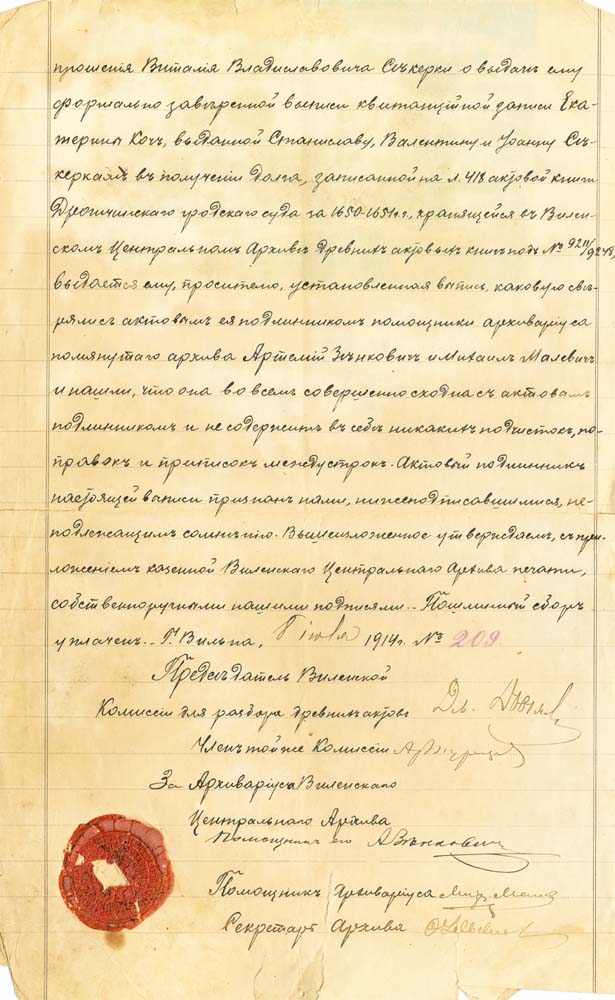 прошенія Виталія Владиславовича Сѣкерки о выдачѣ ему
формально завѣренной выписи квитанціонной записи Ека-
терины Кочъ, выданной Станиславу, Валентину и Іоанну Сѣ-
керкамъ въ полученіи долга, записанной на л. 418 актовой книги
Дрогичинскаго гродскаго суда за 1650-1651 г.г., хранящейся въ Вилен-
скомъ Центральномъ Архивѣ древнихъ актовыхъ книгъ подъ №
выдается ему, просителю, установленная выпись, каковую свѣ-
ряли съ актовымъ ея подлинникомъ помощники архиваріуса
помянутаго архива Артемій Зѣнковичъ и Михаилъ Малевичъ
и нашли, что она во всемъ совершенно сходна съ актовымъ
подлинникомъ и не содержитъ въ себѣ никакихъ подчистокъ, по-
правокъ и приписокъ между строкъ. Актовый подлинникъ
настоящей выписи признанъ нами, нижеподписавшимися, не-
подлежащимъ сомнѣнію. Вышеизложенное утверждаемъ, съ при-
ложеніемъ казенной Виленскаго Центральнаго Архива печати,
собственноручными нашими подписями.- Пошлинный сборъ
уплаченъ.- Г. Вильна, 1914 г. № 209.
Предсѣдатель Виленской
Комиссіи для разбора древнихъ актовъ Дм.
Членъ той же Комиссіи
За Архиваріуса Виленскаго
Центральнаго Архива
Помощникъ его АЗѣнковичъ
Помощникъ Архиваріуса
Секретарь Архива